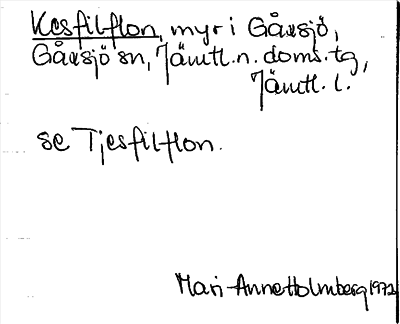 Kesfilflon, myr i Gåxsjö,
Gåxsjö sn, Jämtl. n. doms. tg,
Jämtl. l.
se Tjesfilflon.
Mari-Anne Holmberg 1972